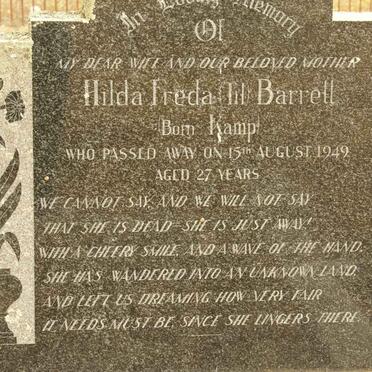 In Loving Memory
Of
MY DEAR WIFE AND OUR BELOVED MOTHER
Hilda Freda (Til) Barrett
(Born Kamp)
WHO PASSED AWAY ON 15TH AUGUST 1949
AGED 27 YEARS
WE CANNOT SAY, AND WE WILL NOT SAY
THAT SHE IS DEAD - SHE IS JUST AWAY!
WITH A CHEERY SMILE, AND A WAVE OF THE HAND,
SHE HAS WANDERED INTO AN UNKNOWN LAND,
AND LEFT US DREAMING HOW VERY FAIR
IT NEEDS MUST BE SINCE SHE LINGERS THERE.